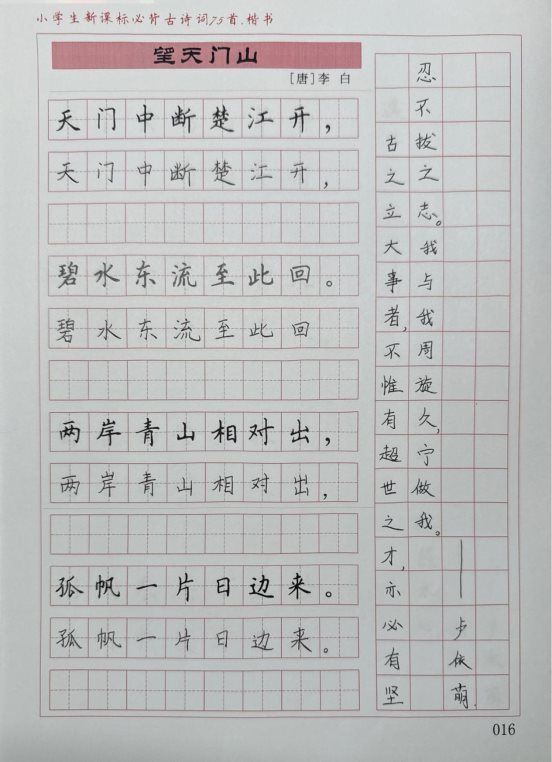 小学生新课标必背古诗词75首.楷书
望天门山
[唐]李 白
天门中断楚江开，
天门中断楚江开，
碧水东流至此回。
碧水东流至此回
两岸青山相对出，
两岸青山相对出，
孤帆一片日边来。
孤帆一片日边来。
古之立大事者，不惟有超世之才，亦必有坚
忍不拔之志。我与我周旋久，宁做我。
——卢萌.
016